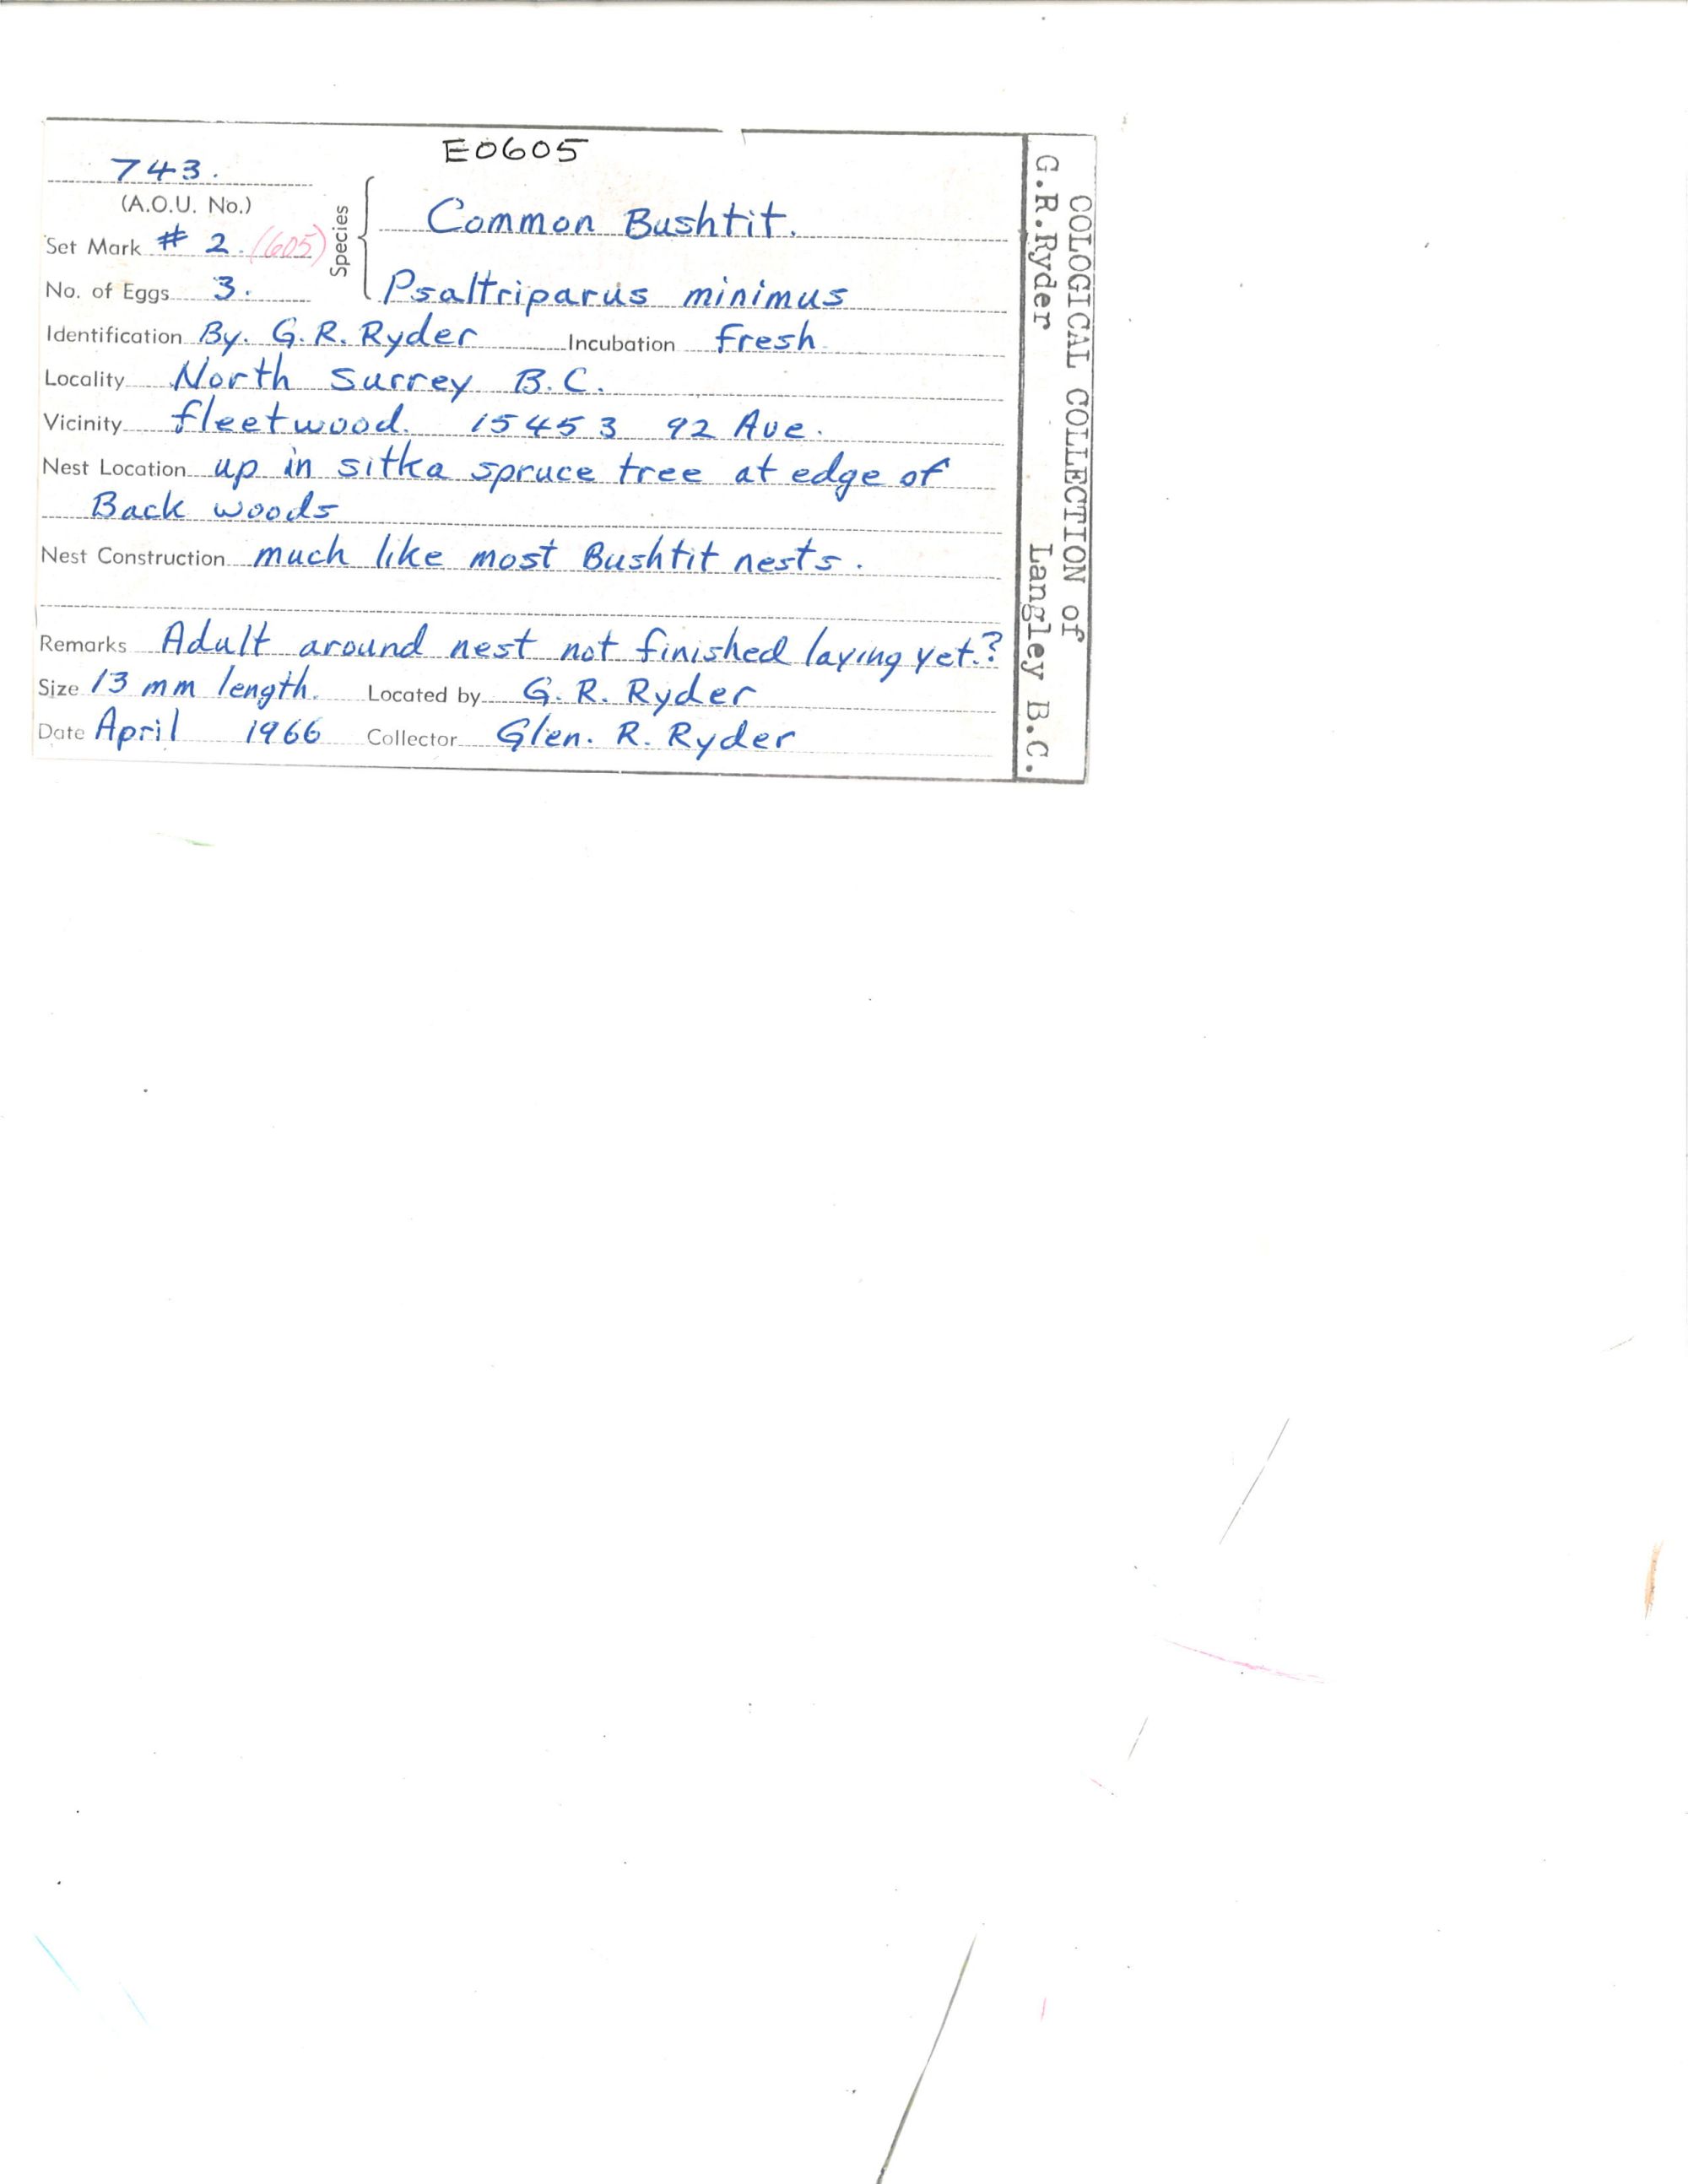 E0605
743.
(A.O.U. No.)
Set Mark # 2. (605)
Species
Common Bushtit.
No. of Eggs 3.
Psaltriparus minimus
Identification By. G. R. Ryder Incubation Fresh
Locality North Surrey B.C.
Vicinity fleetwood. 15453 92 Ave.
Nest Location up in sitka spruce tree at edge of
Back woods
Nest Construction much like most Bushtit nests.
Remarks Adult around nest not finished laying yet.?
Size 13 mm length. Located by G. R. Ryder
Date April 1966 Collector Glen. R. Ryder
OOLOGICAL COLLECTION of
G.R.Ryder Langley B.C.